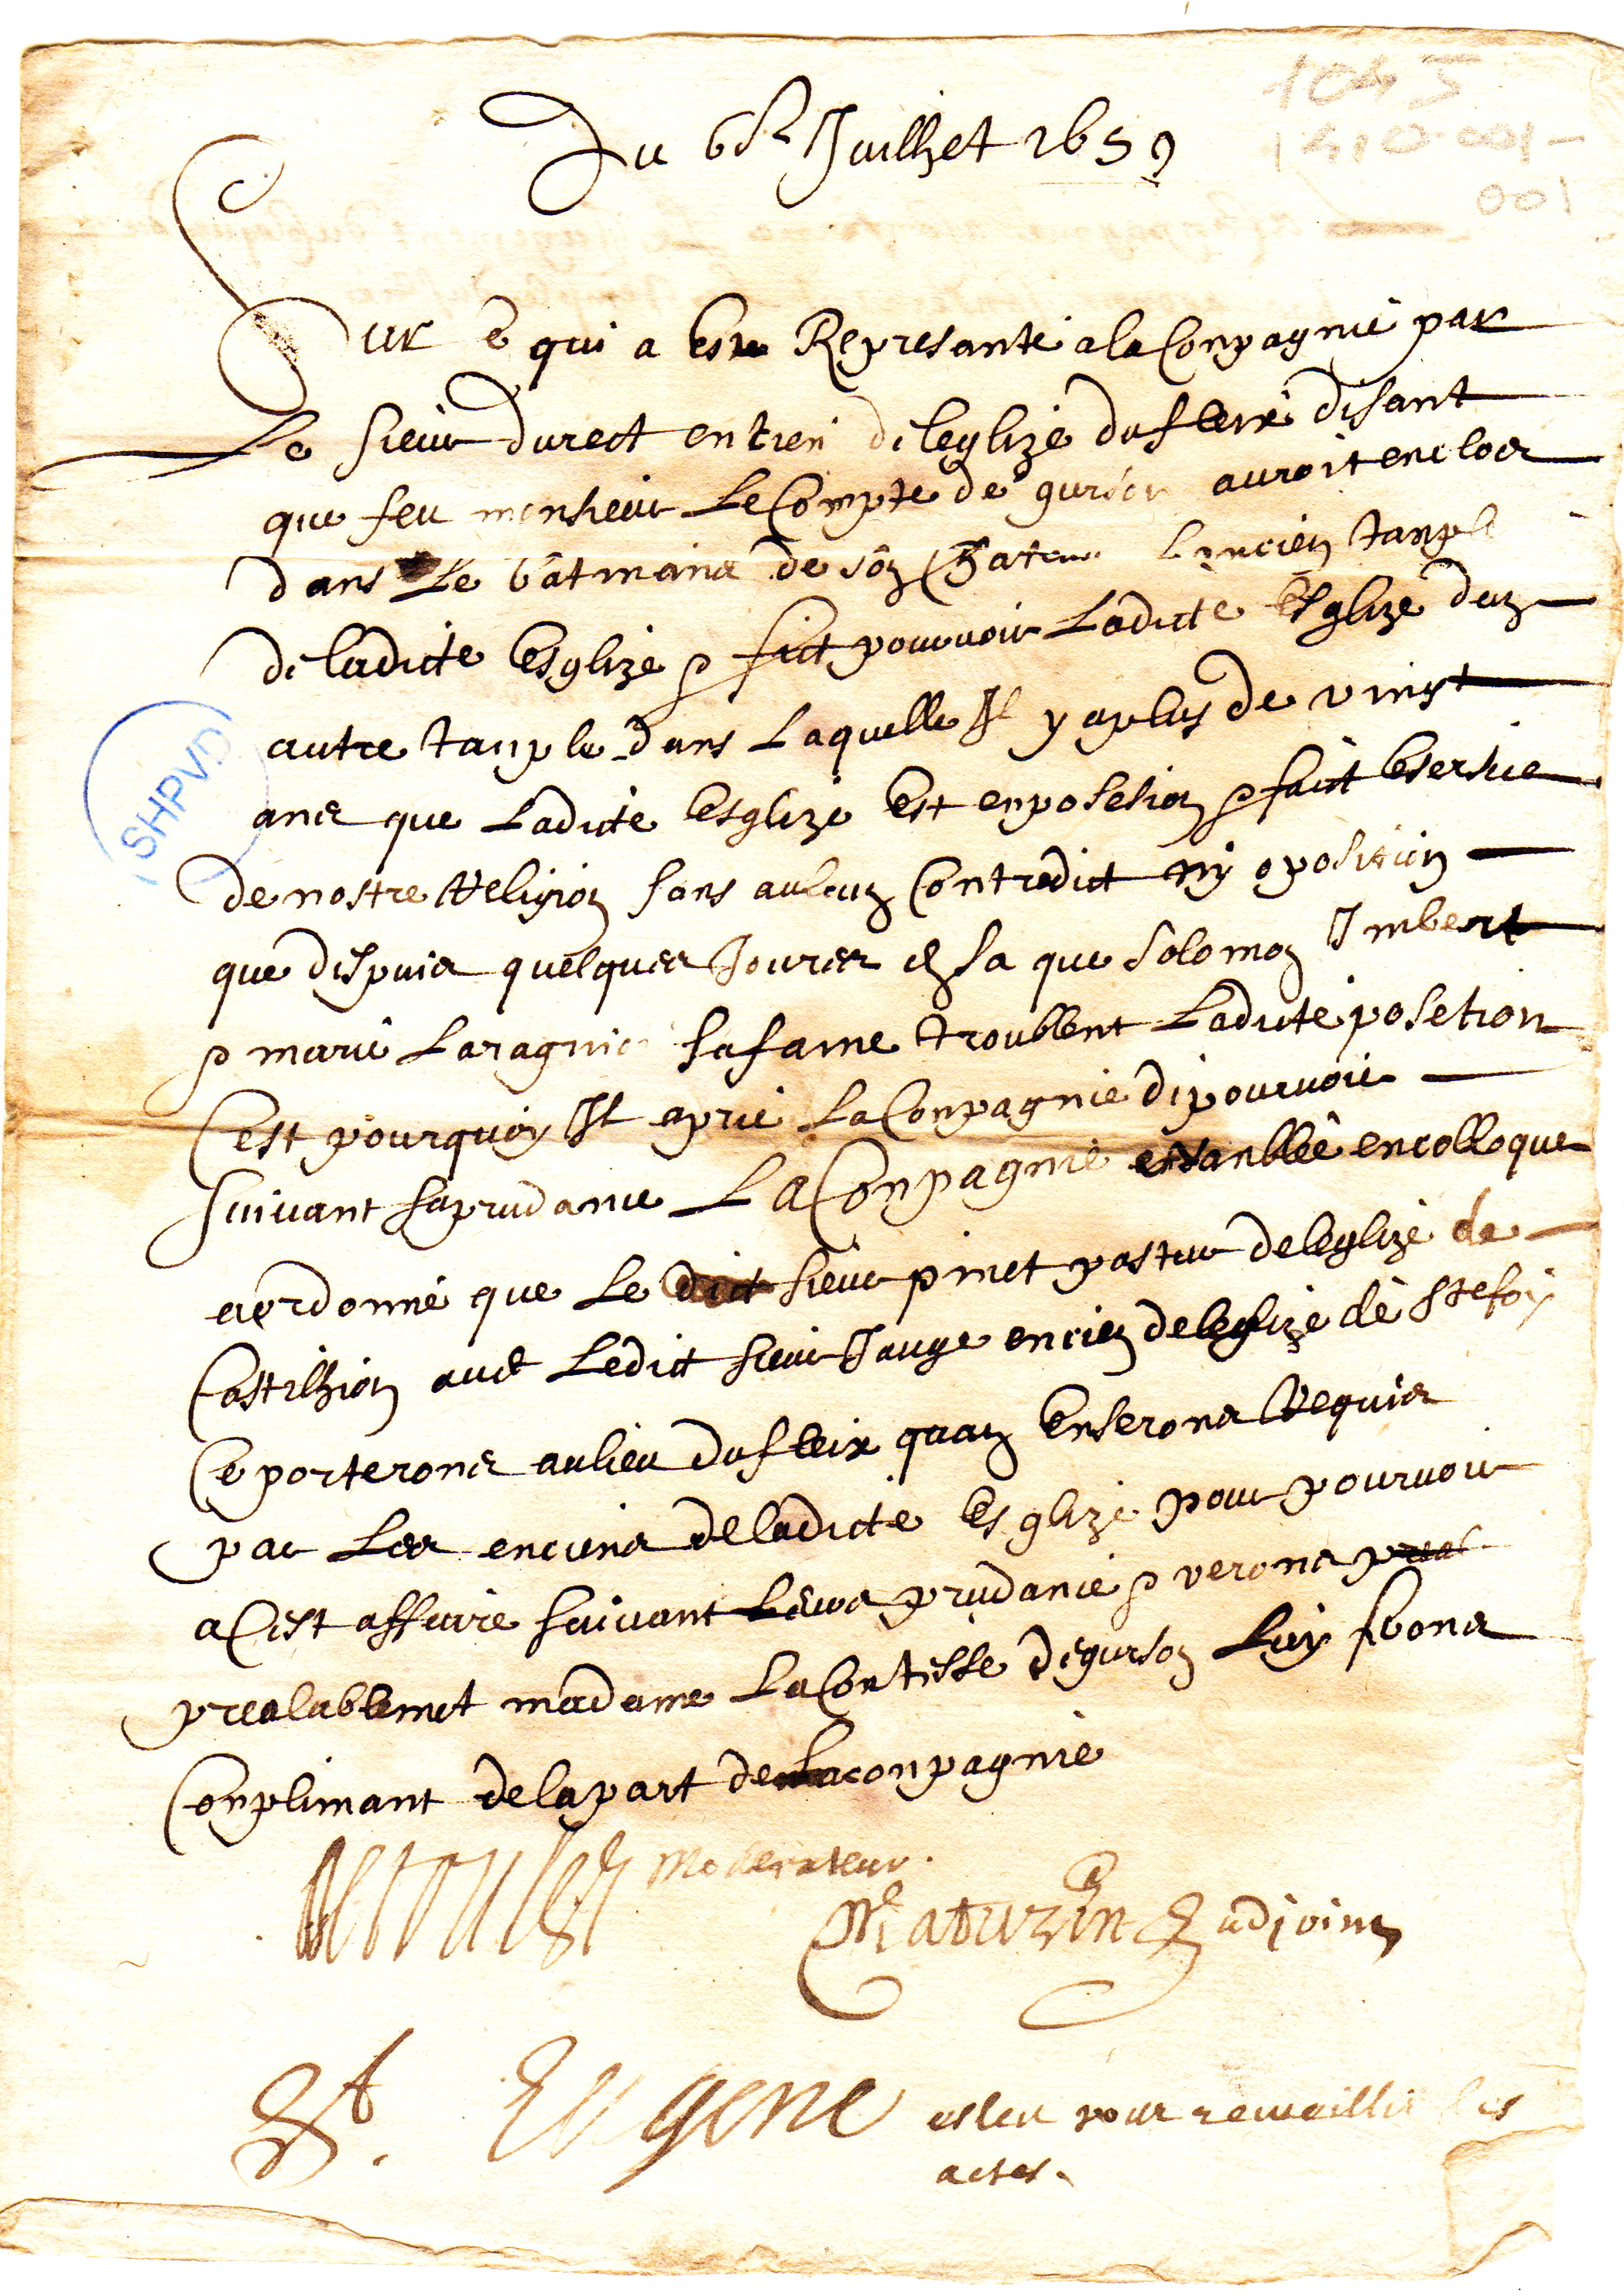 1045
1410.001-
001
Du 6e Juillet 1659
Sur ce qui a este Represante a la Conpagnie par
Le sieur durect entien de leglize du fleix disant
que feu monsieur Le Compte de gurson auroit enclos
dans Le batmans de son Chateau lancien tanple
de ladicte Esglize & fict pourvoir Ladicte Esglize dun
autre tanple dans Laquelle Il y a plus de vingt
ans que Ladicte Esglize Est en posesion & faict Esersice
de nostre Religion sans aulcun Contredict ny oposition
que dispuis quelques Jours en sa que Solomon Imbert
& marie Laragnie sa fame troublent Ladicte posetion
Cest pourquoy Il a prie La Conpagnie di pourvoir
suivant sa prudance La Conpagnie assanblee en colloque
a ordonne que Le dict sieur pinet pasteur de leglize de
Castilhion avec Ledict sieur Jauge encien de leglize de Ste foy
Ce porterons au lieu du fleix quan En serons Requis
par Les enciens de ladicte Esglize pour pourvoir
a Cest affaire suivant Leurs prudance & verons
prealablemet madame La Contesse de gurson Luy ferons
Conplimant de la part de la conpagnie
moderateur.
Maturin adjoint
St. Eugene esleu pour recueillir les
actes.
SHPVD